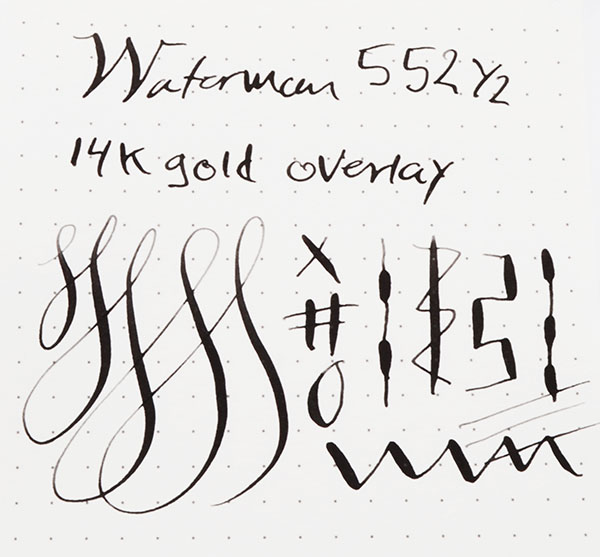 Waterman 552 1/2
14K gold overlay